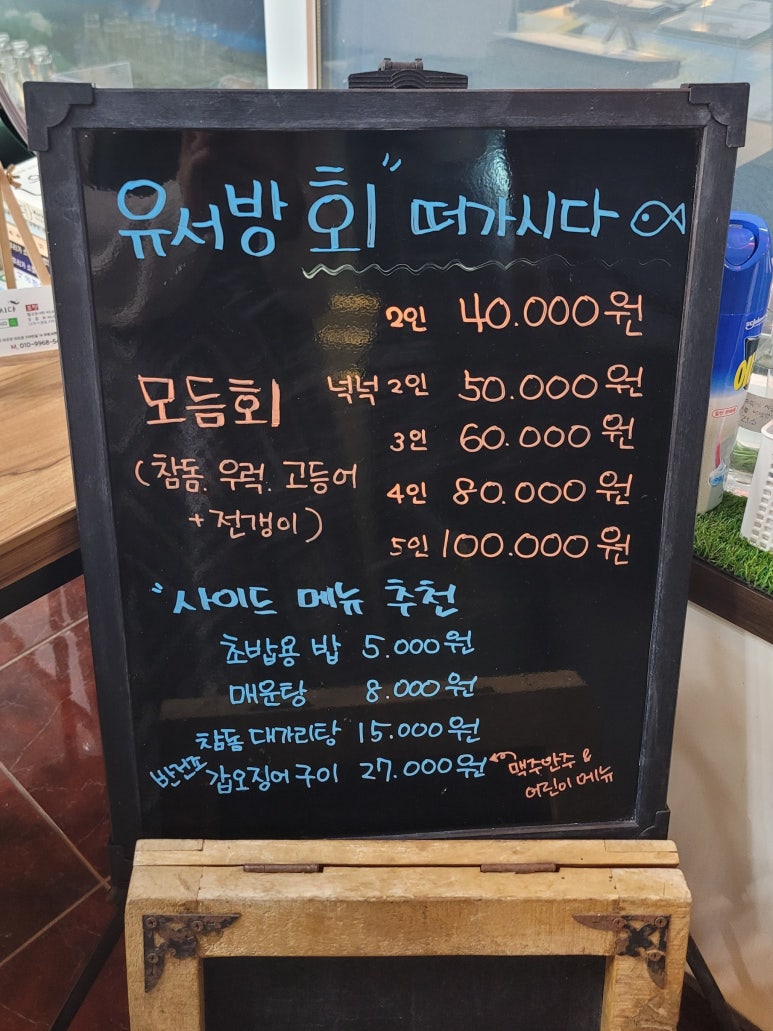 유서방 회" 떠가시다
2인 40.000원
모듬회 넉넉 2인 50.000원
3인 60.000원
(참돔. 우럭. 고등어 4인 80.000원
+ 전갱이) 5인 100.000원
"사이드 메뉴 추천
초밥용 밥 5.000원
매운탕 8.000원
참돔 대가리탕 15.000원
반건조 갑오징어 구이 27.000원 맥주안주 &
어린이 메뉴